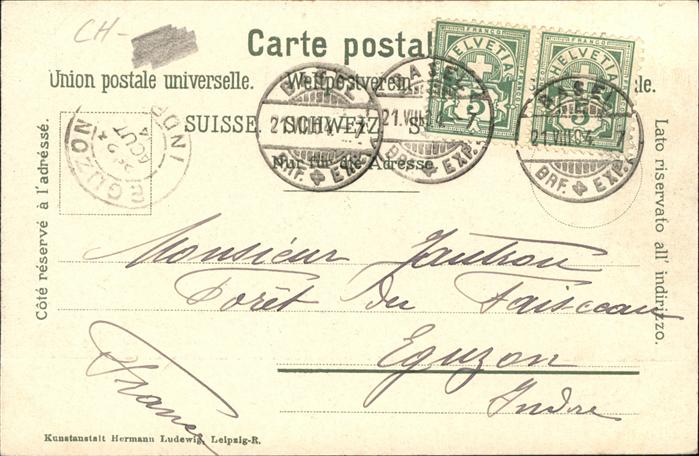 CH-
Carte postal
Union postale universelle. Weltpostverein
SUISSE. SCHWEIZ. S
Nur für die Adresse
Côté réservé à l'adressé.
Lato riservato all' indirizzo.
FRANCO
HELVETIA
5
FRANCO
HELVETIA
5
BASEL
21.VIII.04. 7
BRF. EXP.
BASEL
21.VIII.04. 7
BRF. EXP.
BASEL
21.VIII.04. 7
BRF. EXP.
EGUZON
AOUT
INDRE
Monsieur
Forêt du Faisceau
Eguzon
Indre
France
Kunstanstalt Hermann Ludewig, Leipzig-R.